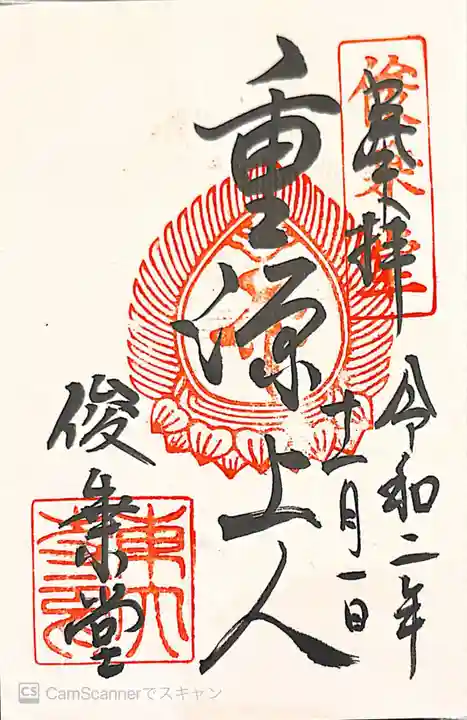 奉拝
俊乗堂
重源上人
令和二年
十一月一日
俊乗堂
東大寺
CamScannerでスキャン